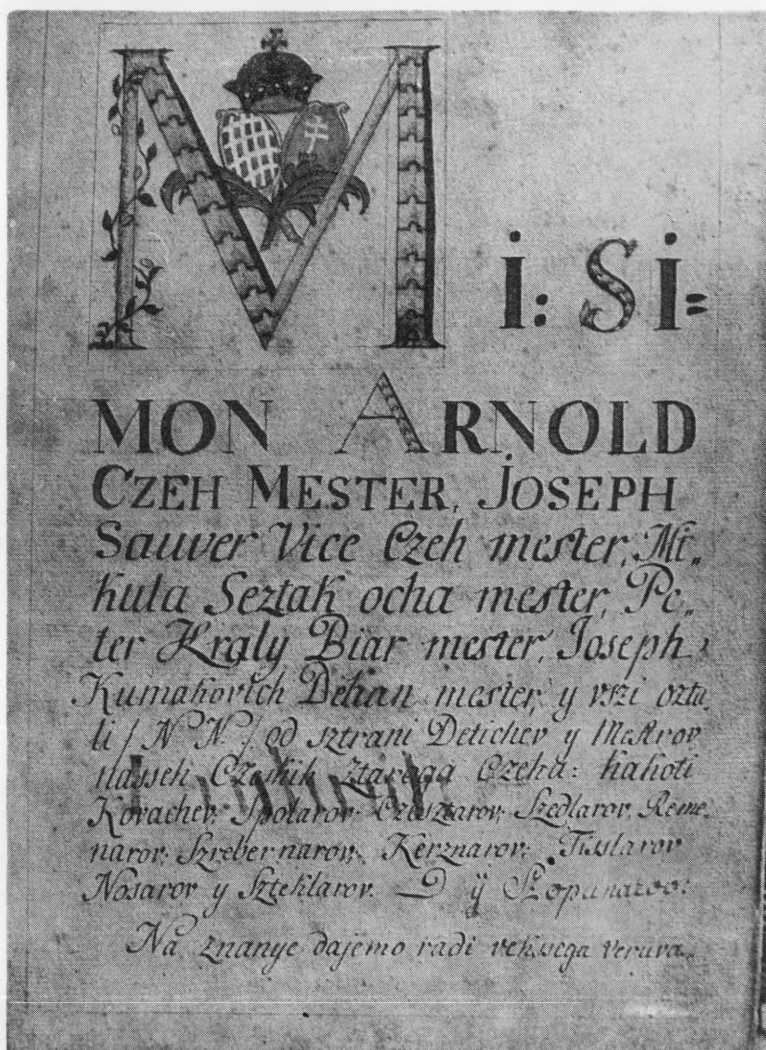 Mi: Si=
MON ARNOLD
CZEH MESTER, JOSEPH
Sauver Vice Czeh mester, Mi„
kula Seztak ocha mester, Pe„
ter Kraly Biar mester, Joseph
Kumahovich Dehan mester, y vszi ozta„
li / N N / od sztrani Detichev y Mestrov
nasseh ztaroga Czeha: kakoti
Kovachev, Czesztarov, Szedlarov, Reme„
narov, Szrebernarov, Kerznarov, Tisslarov
Nosarov y Szteklarov. ÿ
Na znanye dajemo radi vekssega veruva„